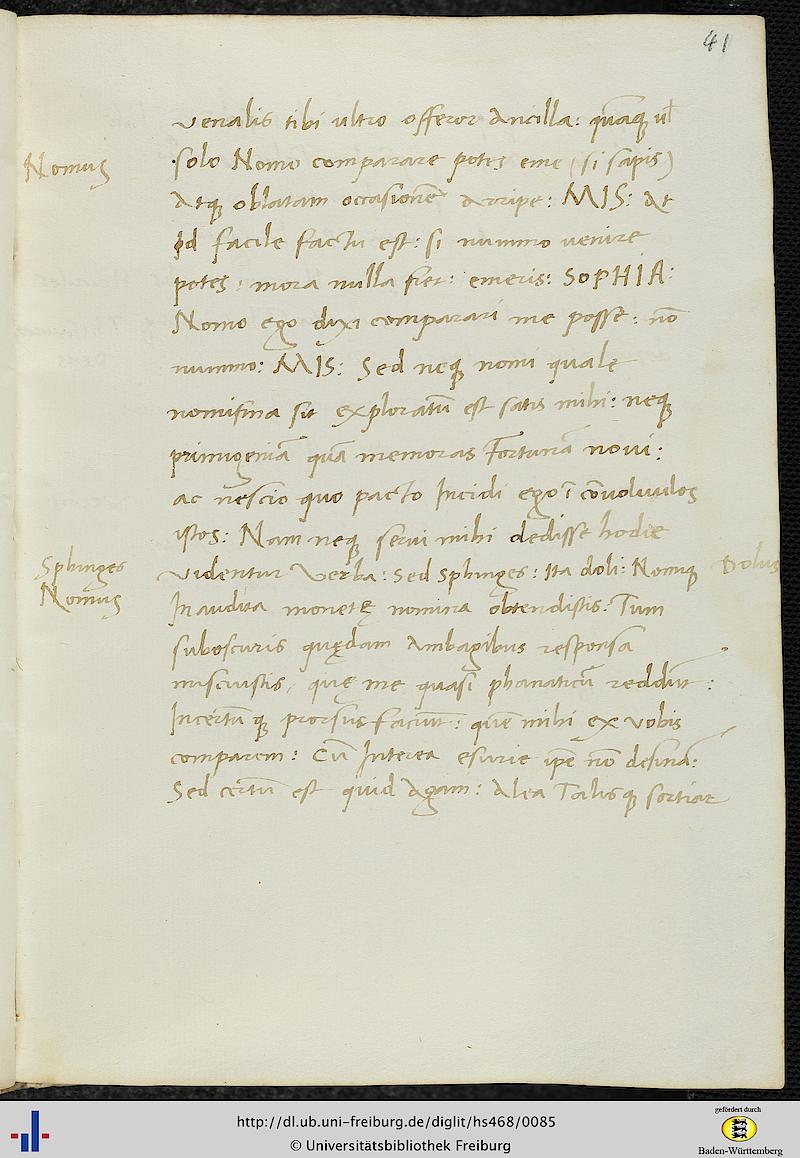 41
venalis tibi ultro offeror Ancilla: quãq ul̃
Nomus
solo Nomo comparare potes eme (si sapis)
Atq oblatam occasionẽ Arripe: MIS: At
Id facile factu est: si nummo venire
potes: mora nulla fiet: emeris: SOPHIA:
Nomo ego dixi comparari me posse: nõ
nummo: MIS: Sed neq nomi quale
nomisma sit exploratũ est satis mihi: neq
primigeniã quã memoras Fortunã novi:
ac nescio quo pacto Incidi ego ĩ cõvolvulos
istos: Nam neq servi mihi dedisse hodie
Sphinges
videntur verba: Sed Sphinges: Ita doli: Nomiq
Dolus
Nomus
Inaudita monetę nomina obtendistis: Tum
suboscuris quędam Ambagibus responsa
miscuistis, quę me quasi phanaticũ reddũt:
Incertũ q prorsus faciũt: quẽ mihi ex vobis
comparem: Cũ Interea esurie ipẽ nõ desinã:
Sed certũ est quid Agam: Alea Talisq sortiar
http://dl.ub.uni-freiburg.de/diglit/hs468/0085
© Universitätsbibliothek Freiburg
gefördert durch
Baden-Württemberg